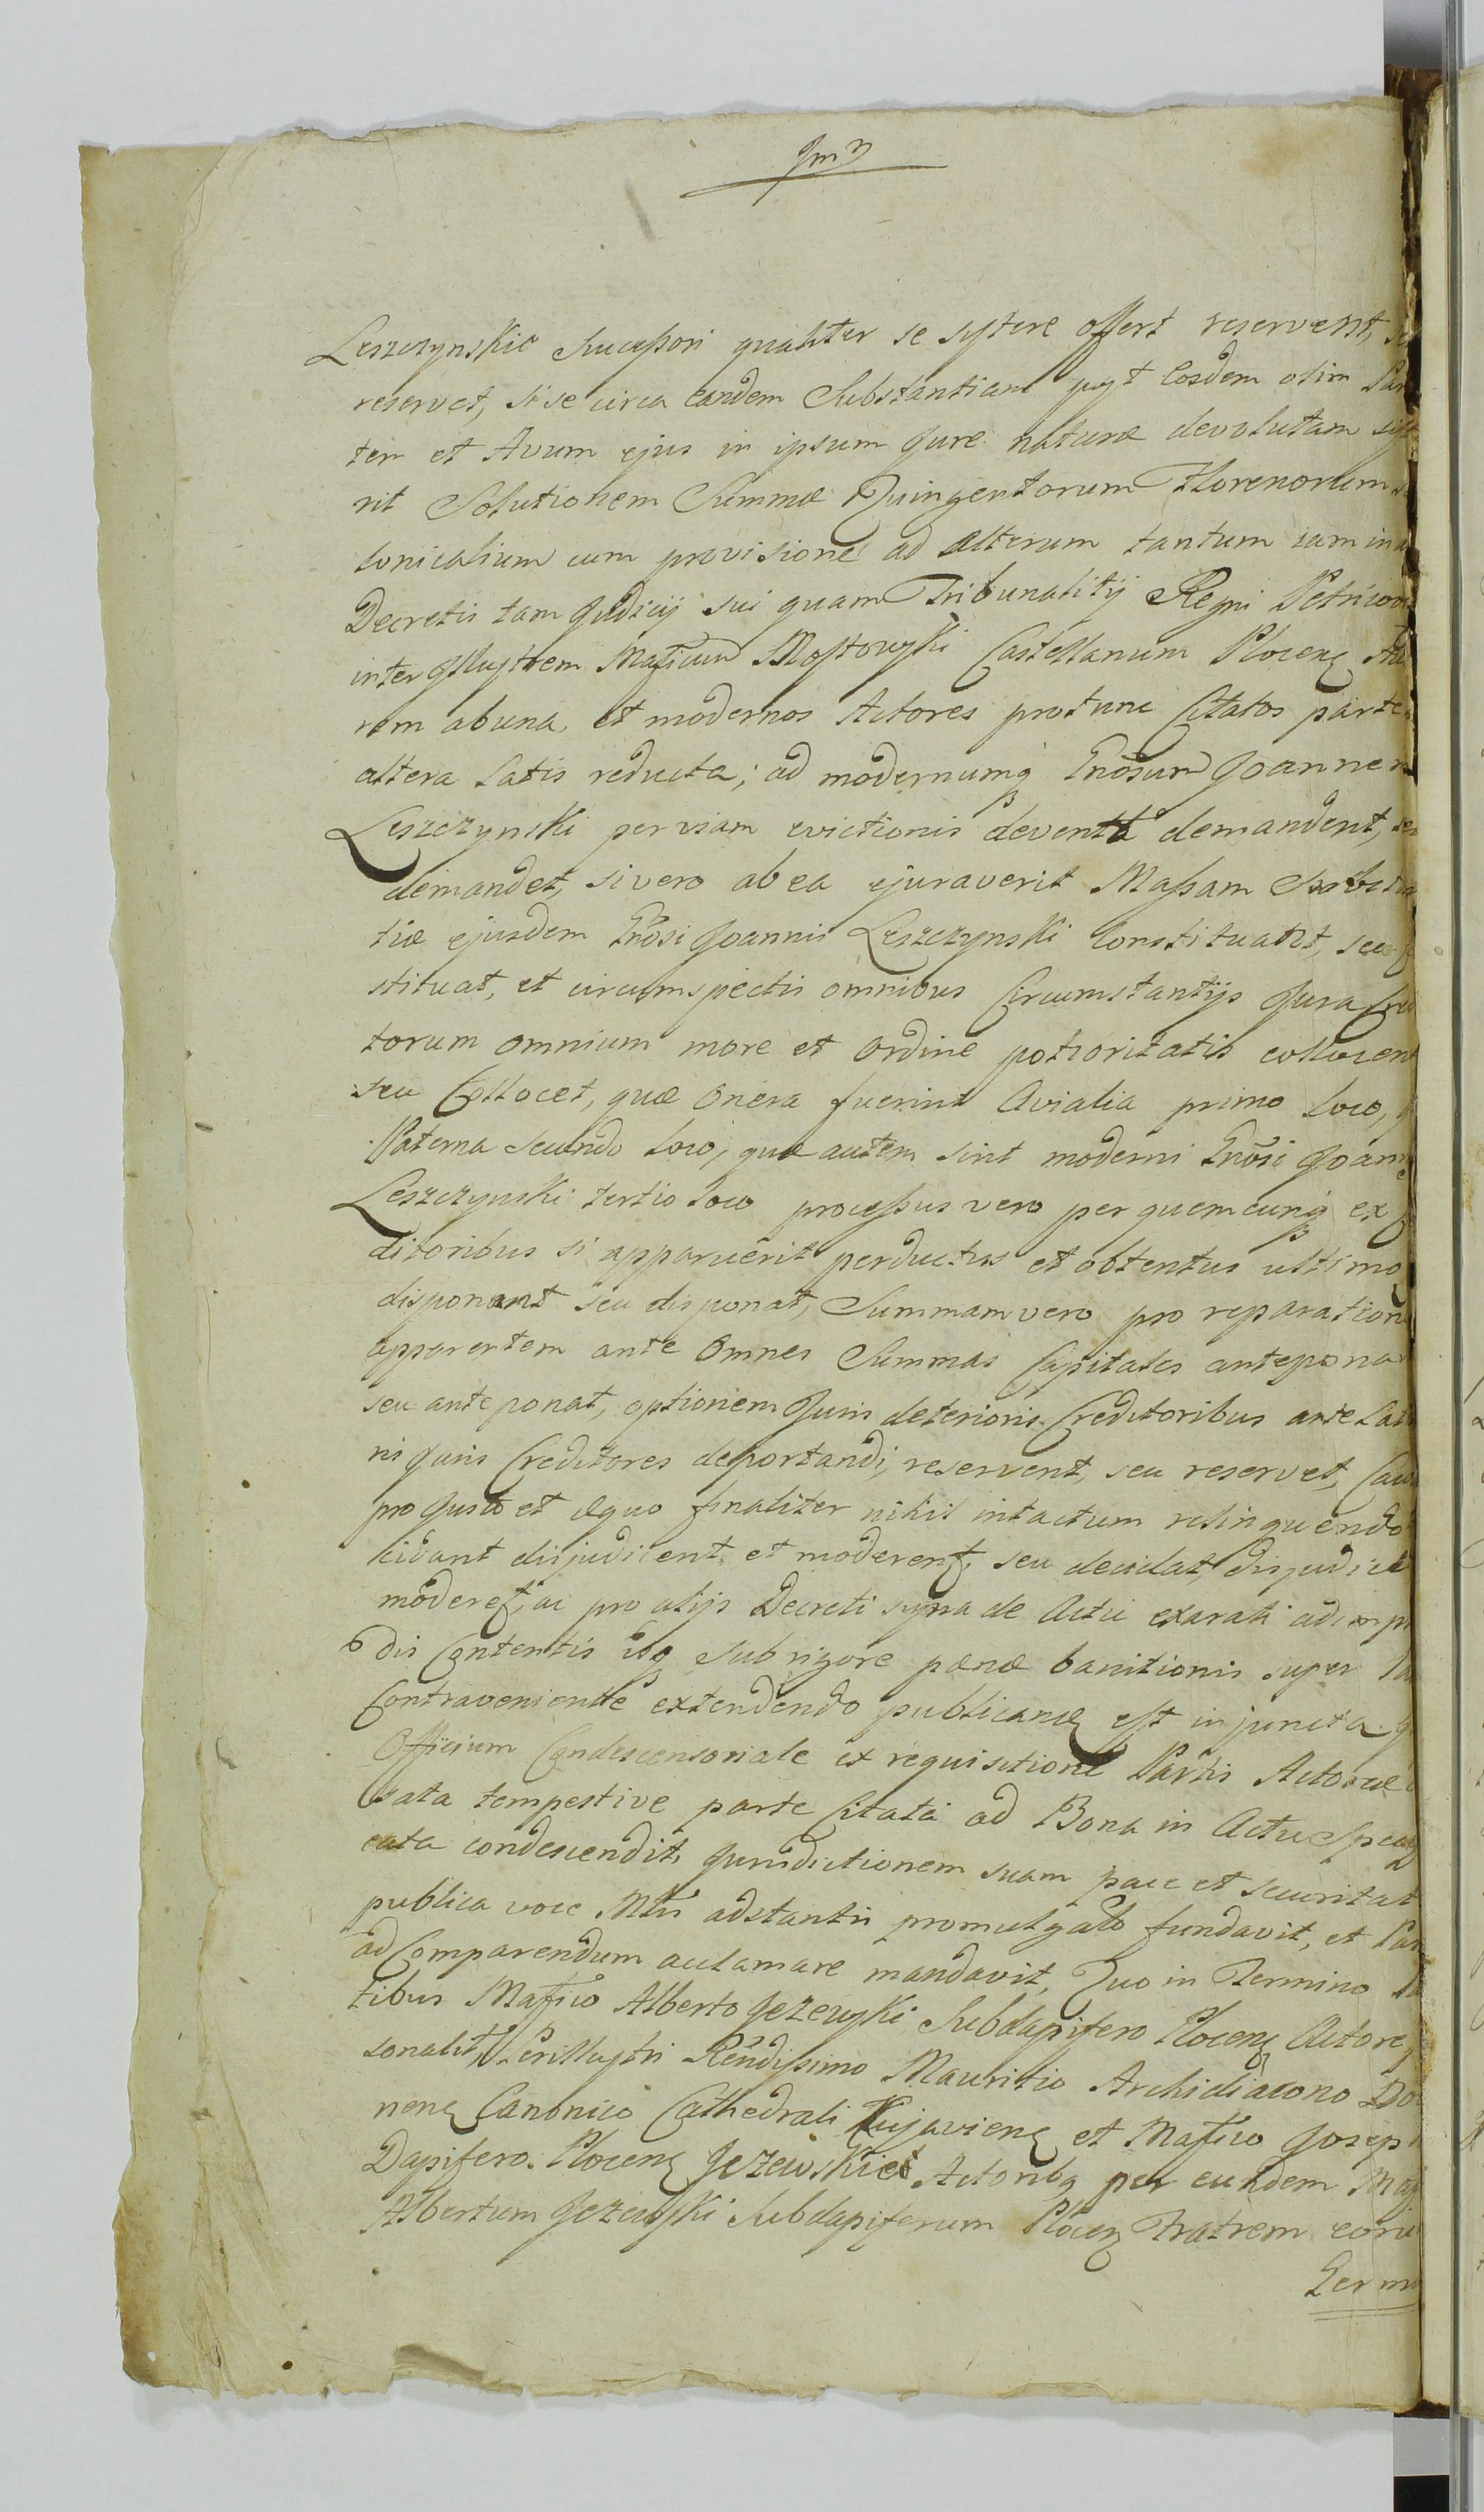 Leszczynskie Successori qualiter se sistere offert reservent,
reservet, si se circa eandem Substantiam post Eosdem olim
tem et Avum ejus in ipsum Jure naturæ devolutam
rit Solutionem Summæ Quingentorum Florenorum
lonicalium cum provisione ad alterum tantum iam in
Decretis tam Judicij sui quam Tribunalitij Regni
inter Illustrem Maficum Mostowski Castellanum Plocens
rem ab una, et modernos Actores protunc Citatos parte
altera Satis reducta; ad modernumq Gnosum Joannem
Leszczynski per viam evictionis devent demandent,
demandet, si vero ab ea ejuraverit Massam
tiæ ejusdem Gnosi Joannis Leszczynski Constituant, seu
stituat, et circumspectis omnibus Circumstantijs Jura
torum omnium more et ordine potioritatis collocent
seu Collocet, quæ onera fuerint Avialia primo loco,
Paterna secundo loco, quæ autem sint moderni Gnosi
Leszczynski tertio loco processus vero per quemcunq ex
ditoribus si apparuerit perductus et obtentus ultimo
disponant seu disponat, Summam vero pro reparatione
apparentem ante omnes Summas Capitales
seu anteponat, optionem Juris deterioris Creditoribus
ris Juris Creditores deportandi, reservent, seu reservet,
pro Justo et æquo finaliter nihil intactum relinquendo
cidant disjudicent, et moderent, seu decidat,
moderet, ac pro alijs Decreti supra de Actu exarati
dis Contentis idq sub rigore pænæ banitionis super
Contraveniente extendendo publicanæ est injuncta
Officium Condescensoriale ex requisitione Partis Actoreæ
sata tempestive parte Citata ad Bona in Actu
cata condescendit, Jurisdictionem suam pace et
publica voce Mlis adstantis promulgato fundavit, et
ad Comparendum acclamare mandavit, Quo in Termino
tibus Mafico Alberto Jezewski Subdapifero Plocens Actore
sonalit, Perillustri Rendissimo Mauritio Archidiacono
nens Canonico Cathedrali Kujaviens et Mafico
Dapifero Plocens Jezewskie Actoribq per eundem
Albertum Jezewski Subdapiferum Plocens Fratrem